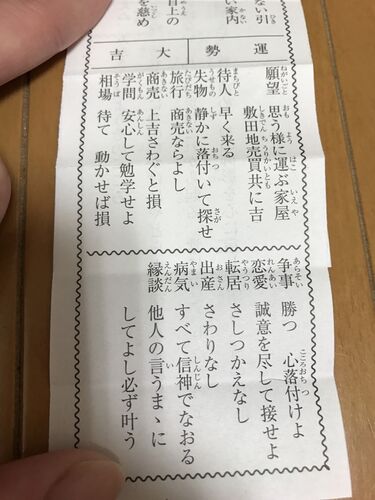 ない引
い家内
目上の
を慰め
運勢
大吉
願望 思う様に運ぶ家屋
敷田地売買共に吉
待人 早く来る
失物 静かに落付いて探せ
旅行 商売ならよし
商売 上吉さわぐと損
学問 安心して勉学せよ
相場 待て 動かせば損
争事 勝つ 心落付けよ
恋愛 誠意を尽して接せよ
転居 さしつかえなし
出産 さわりなし
病気 すべて信神でなおる
縁談 他人の言うまゝに
してよし必ず叶う